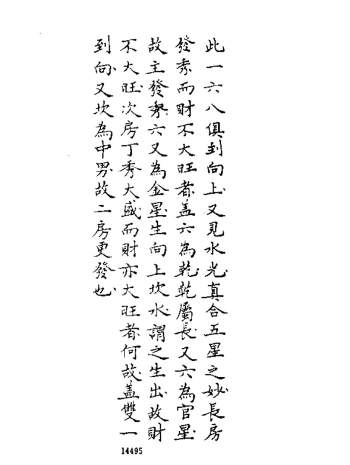 此一六八俱到向上又見水光真合五星之妙長房
發秀而財不大旺者蓋六為乾乾屬長又六為官星
故主發秀六又為金星生向上坎水謂之生出故財
不大旺次房丁秀大盛而財亦大旺者何故蓋雙一
到向又坎為中男故二房更發也
14495